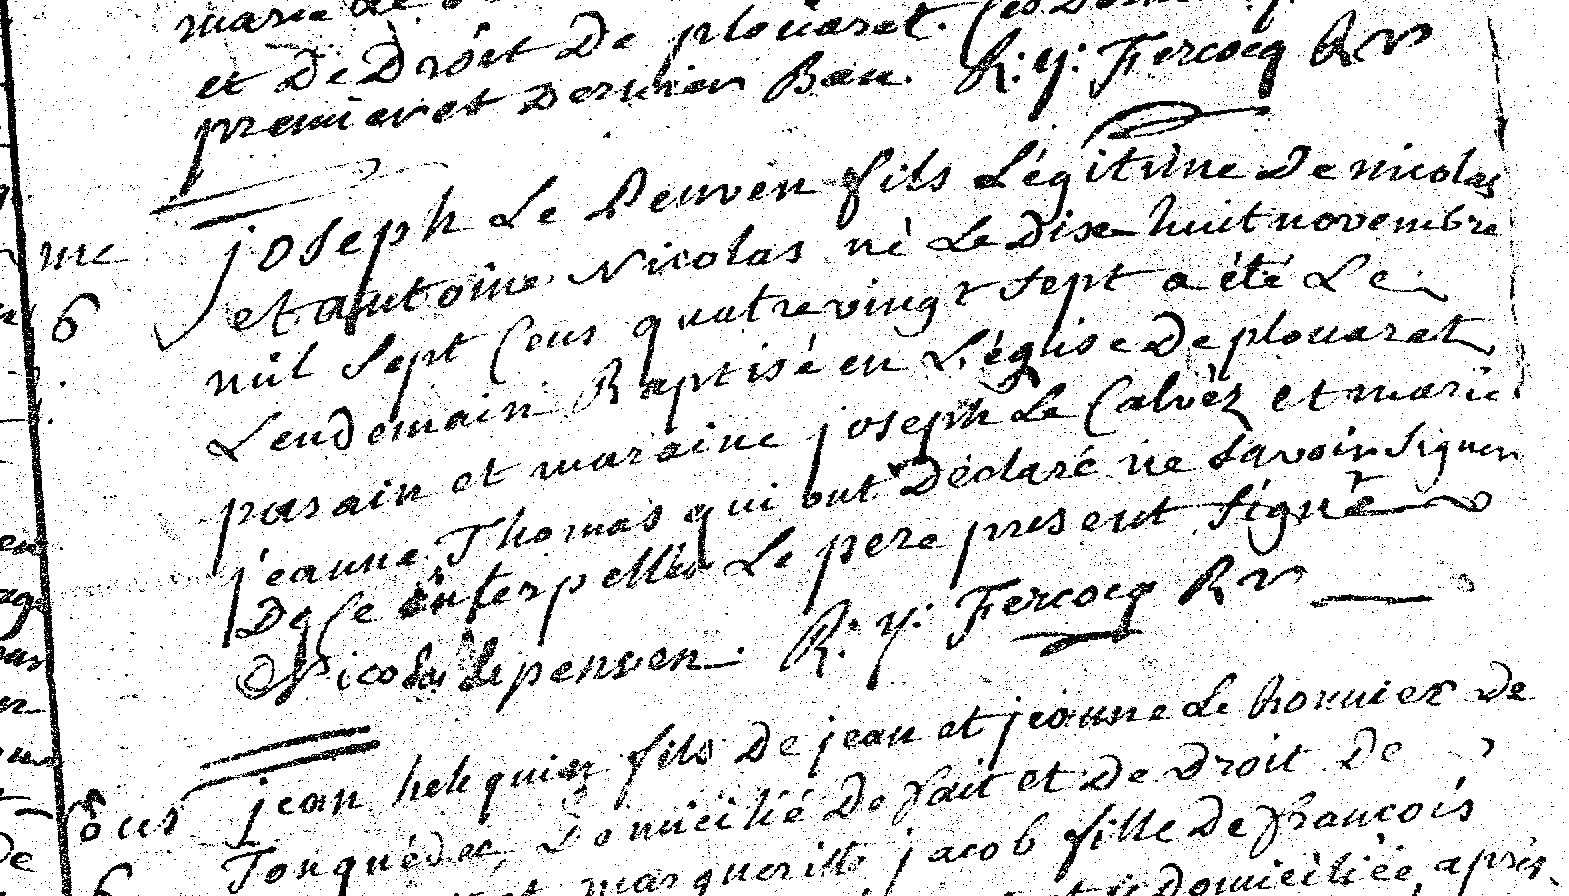 marie de
et De Droit De plouaret. Ces Deux
premier et Dernier Ban. R: y: Fercocq Rr
joseph Le Penven fils Légitime De nicolas
me
et antoine Nicolas né Le Dise huit novembre
6
mil sept Cens quatre vingt sept a été Le
Lendemain Baptisé en L'église De plouarat
parain et maraine joseph Le Calvez et marie
jeanne Thomas qui ont Déclaré ne savoir signer
De Ce interpellés Le pere present signé
Nicolas Le penven. R: y: Fercocq Rr
jean helequiez fils De jean et jeanne Le bonnier De
ous
Tonquédec, Domicilié De fait et De Droit De
6
margueritte jacob fille De francois
Domiciliée, après